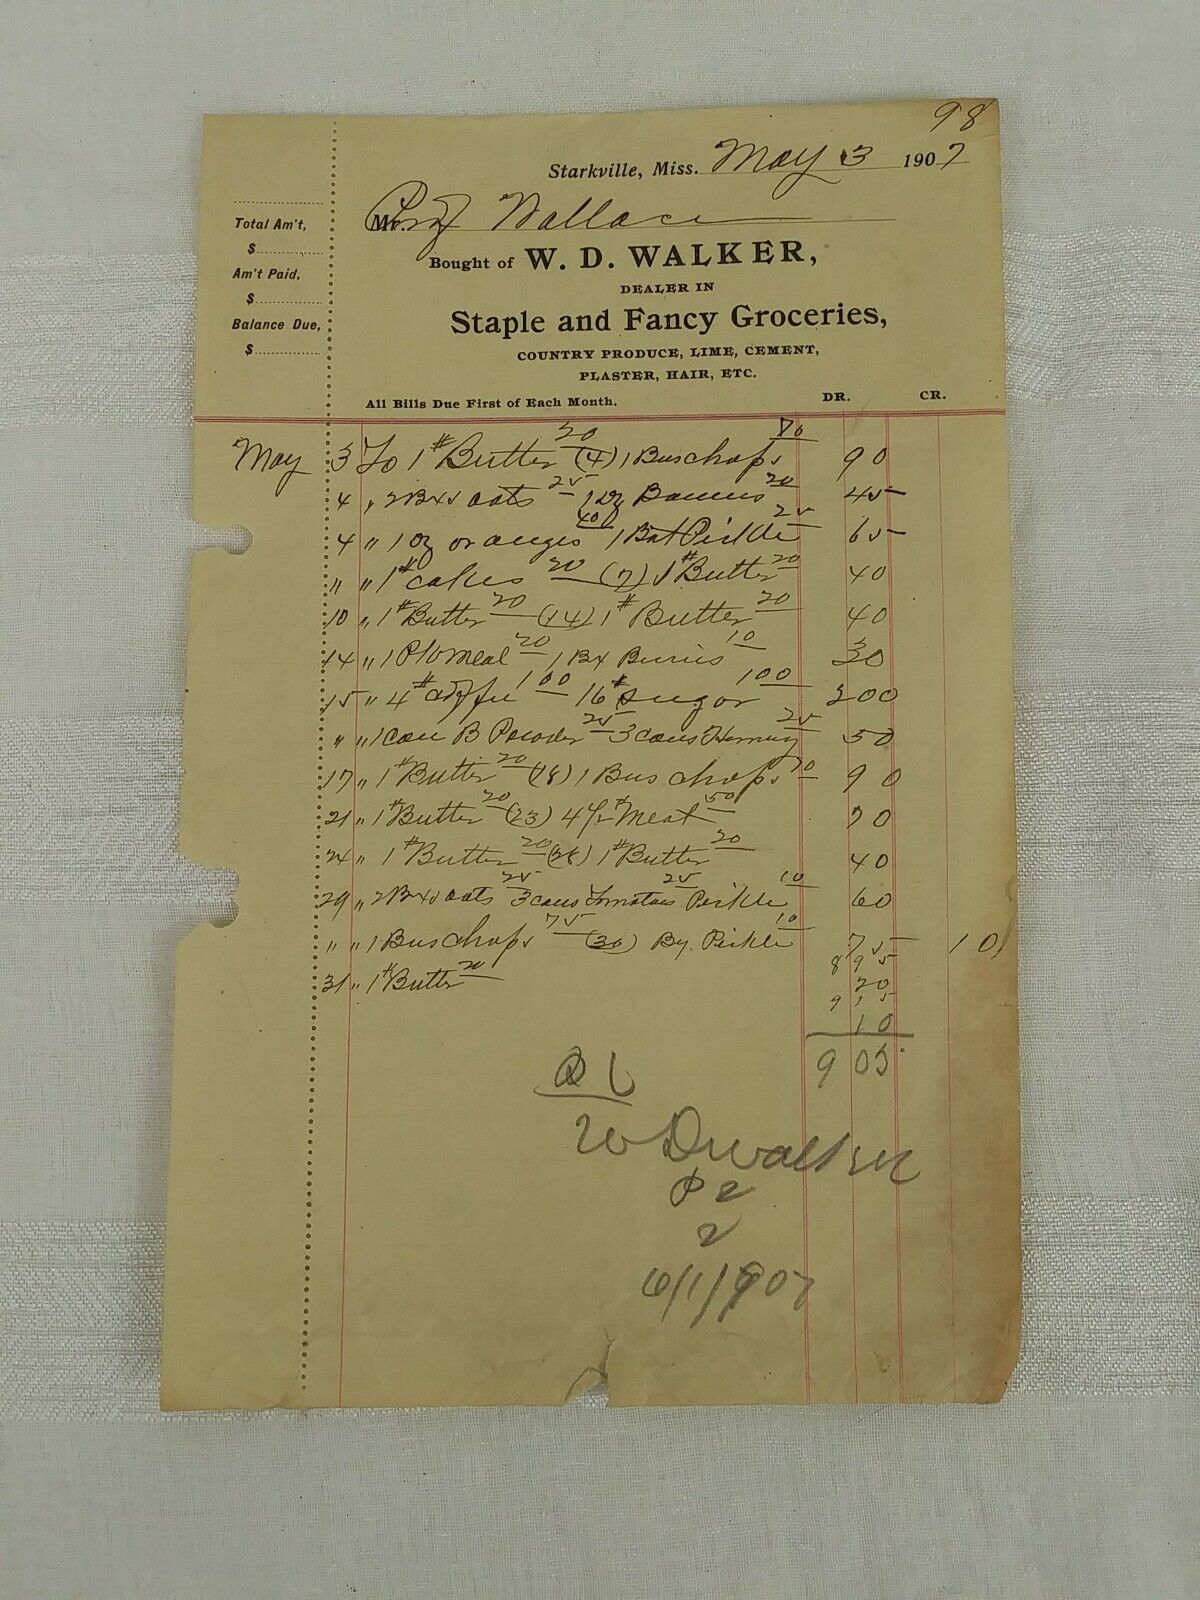 98
Starkville, Miss. May 3 1907
Mr. Wallace
Total Am't,
$
Am't Paid,
$
Balance Due,
$
Bought of W. D. WALKER,
DEALER IN
Staple and Fancy Groceries,
COUNTRY PRODUCE, LIME, CEMENT,
PLASTER, HAIR, ETC.
All Bills Due First of Each Month. DR. CR.
May 3 To 1# Butter 20 (4) 1 Bus chops 70 90
4 " 2 Bxs oats 25 1 Dz 20 45
4 " 1 Dz oranges 40 1 Bot Pickle 25 65
" " 1# cakes 20 (7) 1# Butter 20 40
10 " 1# Butter 20 (14) 1# Butter 20 40
14 " 1 meal 20 1 Bx 10 30
15 " 4# 100 16# sugar 100 200
" " 1 can B Powder 25 3 cans Hominy 25 50
17 " 1# Butter 20 (18) 1 Bus chops 70 90
21 " 1# Butter 20 (23) 4 1/2# Meat 50 70
24 " 1# Butter 20 1# Butter 20 40
29 " 2 Bxs oats 25 3 cans Tomatoes 25 Pickle 10 60
" " 1 Bus chops 75 (30) By. Pickle 10 75 10
895
31 " 1# Butter 20 20
915
10
905
W D Walker
2
6/1/907